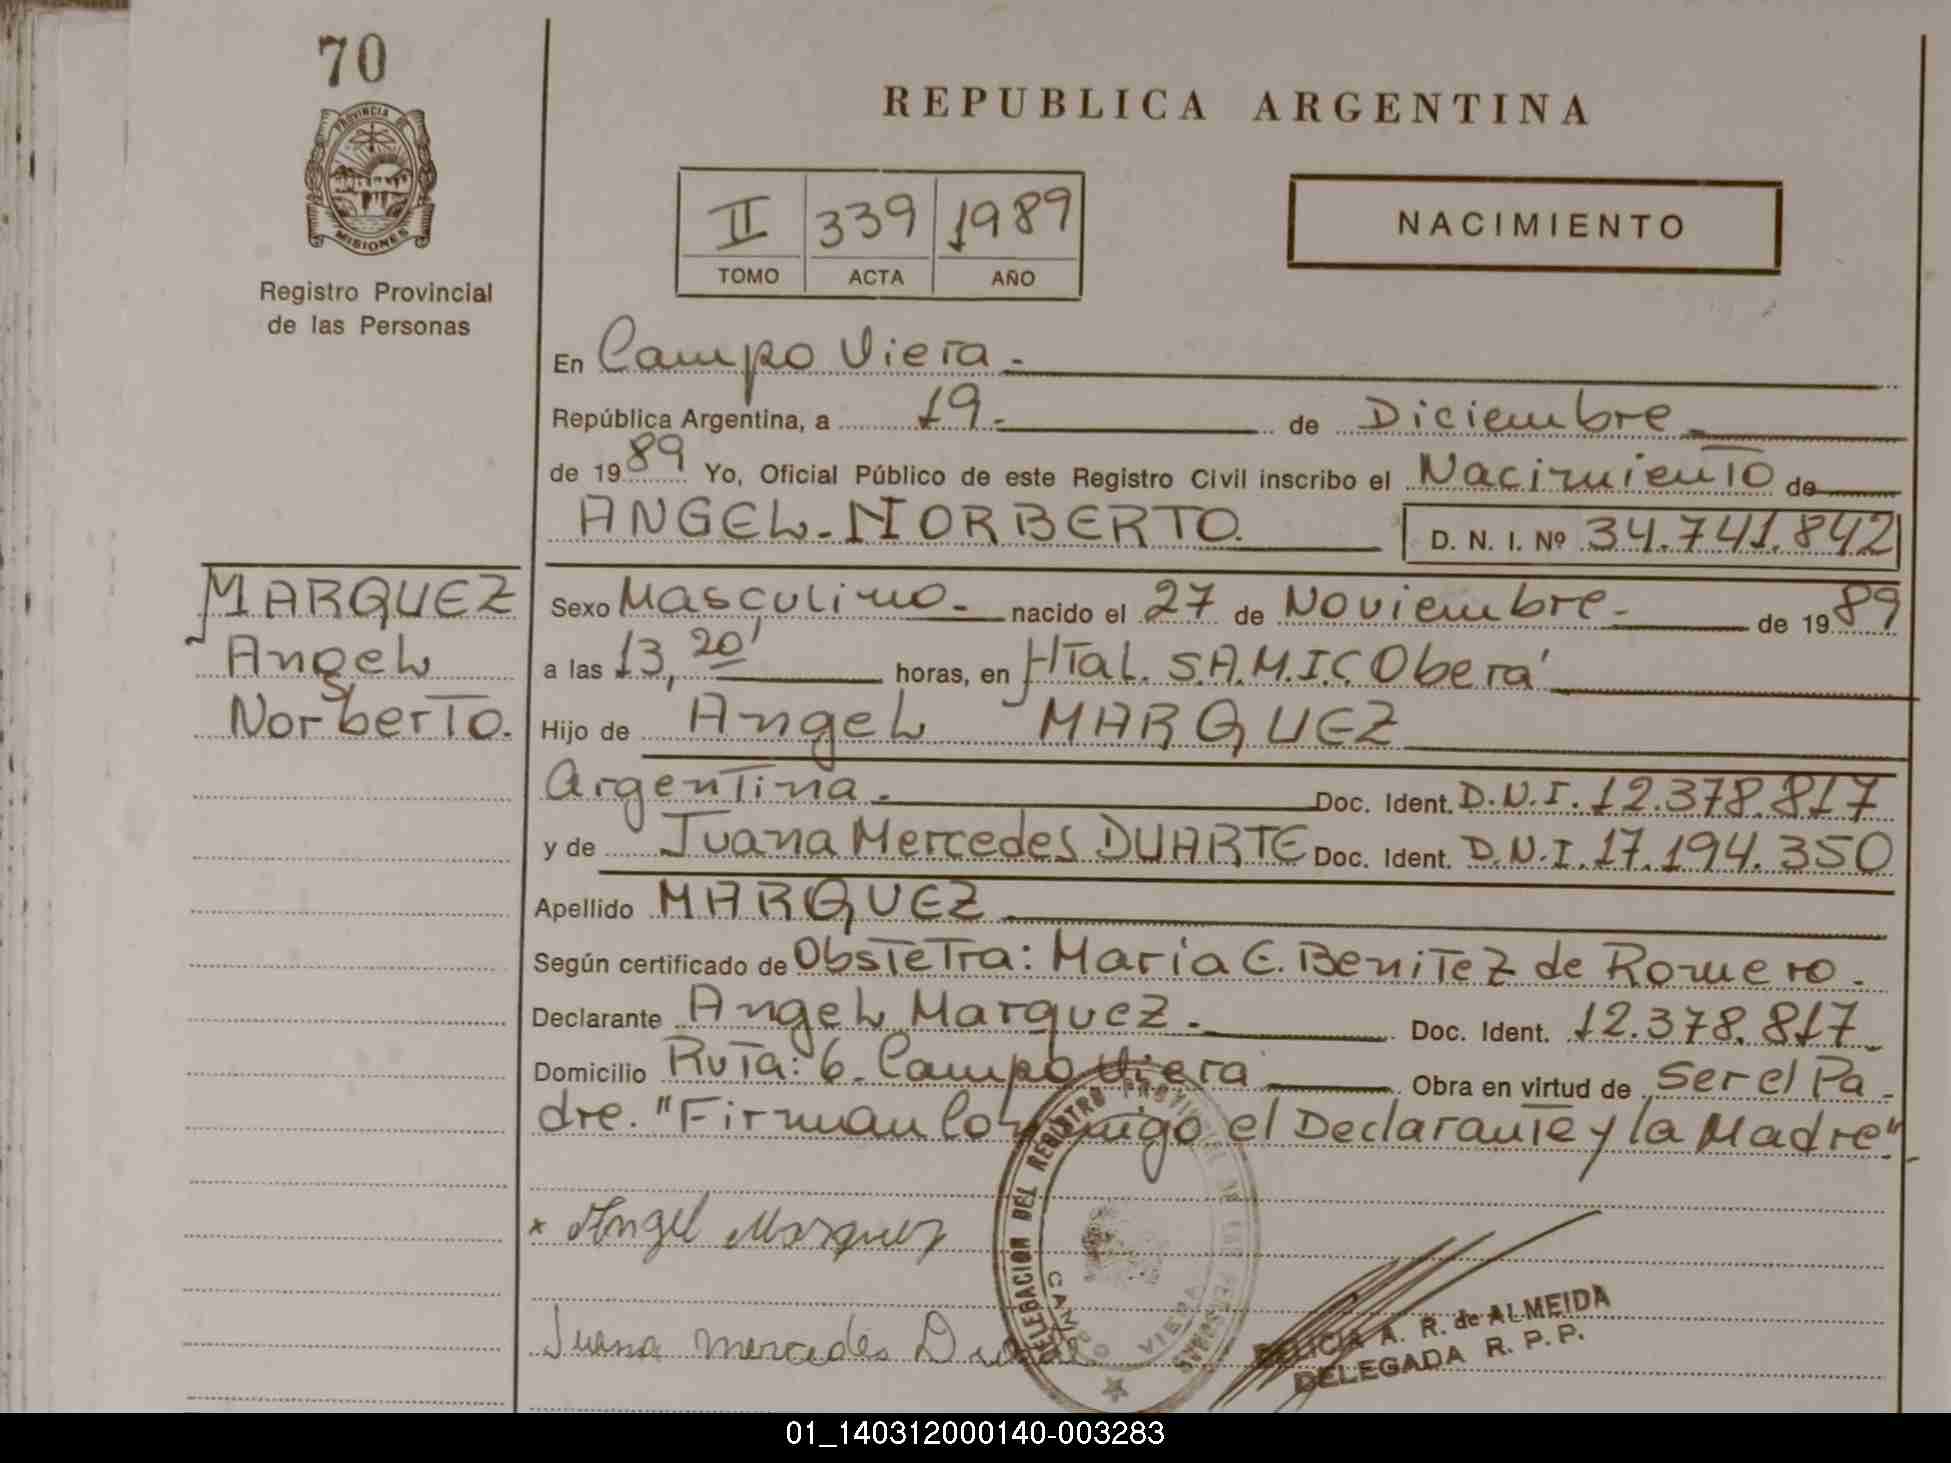 70
PROVINCIA DE
MISIONES
Registro Provincial
de las Personas
REPUBLICA ARGENTINA
II 339 1989
TOMO ACTA AÑO
NACIMIENTO
En Campo Viera.
República Argentina, a 19. de Diciembre
de 1989 Yo, Oficial Público de este Registro Civil inscribo el Nacimiento de
ANGEL NORBERTO. D. N. I. Nº 34.741.842
MARQUEZ
Angel
Norberto.
Sexo Masculino. nacido el 27 de Noviembre. de 1989
a las 13,20' horas, en Htal. S.A.M.I.C. Oberá
Hijo de Angel MARQUEZ
Argentina. Doc. Ident. D.N.I. 12.378.817
y de Juana Mercedes DUARTE Doc. Ident. D.N.I. 17.194.350
Apellido MARQUEZ
Según certificado de Obstetra: Maria E. Benitez de Romero.
Declarante Angel Marquez. Doc. Ident. 12.378.817
Domicilio Ruta: 6. Campo Viera Obra en virtud de Ser el Pa
dre. "Firman Conmigo el Declarante y la Madre"
DELEGACION DEL REGISTRO PROVINCIAL DE LAS PERSONAS
CAMPO VIERA
x Angel Marquez
Juana mercedes Duarte
FELICIA A. R. de ALMEIDA
DELEGADA R. P. P.
01_140312000140-003283